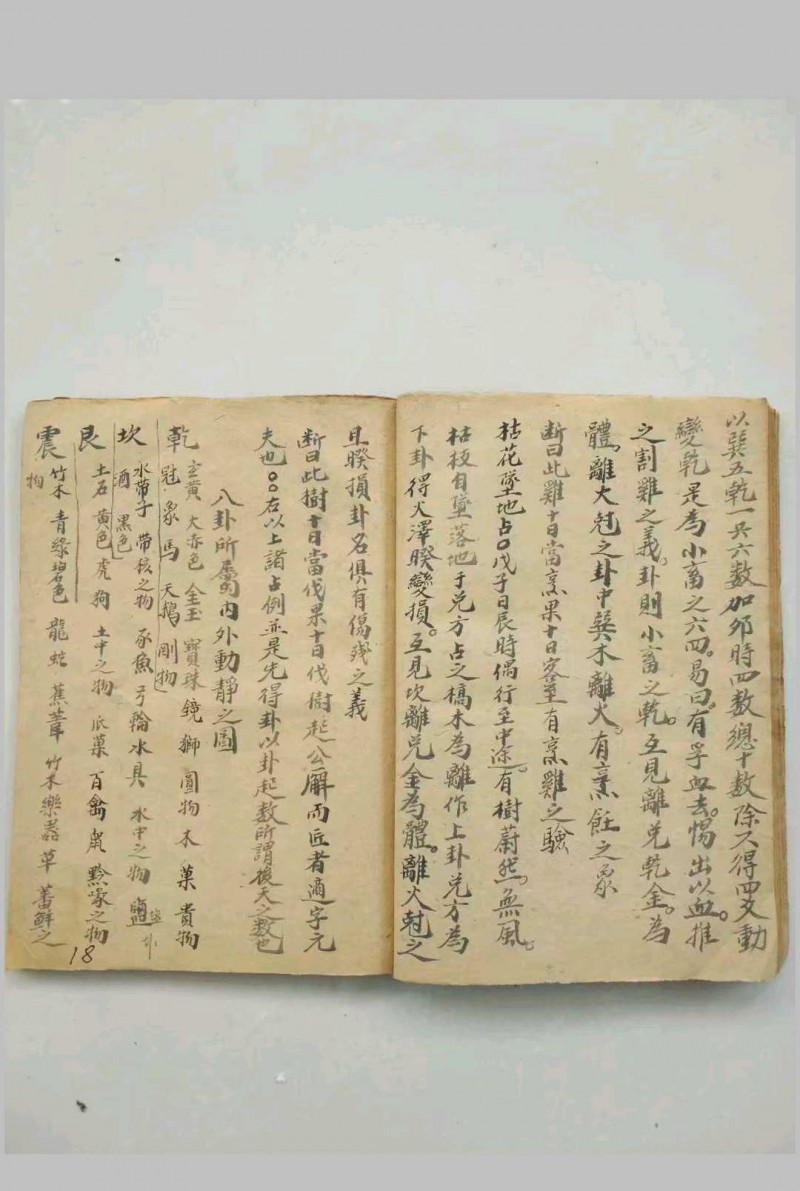 以巽五乾一共六數加夘時四數總十數除六得四爻動
變乾是為小畜之六四。易曰。有孚血去。惕出以血。推
之割雞之義。卦則小畜之乾。互見離兌乾金。為
體。離火尅之卦中巽木離火。有烹飪之象
断曰此雞十日當烹果十日客至有烹雞之驗
枯花墜地占○戊子日辰時偶行至中途。有樹蔚然。無風。
枯枝自墜落地于兌方占之槁木為離作上卦兌方為
下卦得火澤睽變損。互見坎離兌金為體。離火尅之
且睽損卦名俱有傷殘之義
断曰此樹十日當伐果十日伐樹起公廨而匠者適字元
夫也○○右以上諸占例並是先得卦以卦起数所謂後天之数也
八卦所屬內外動静之圖
乾 玄黄 大赤色 金玉 寶珠 鏡 獅 圓物 木菓 貴物
冠 象 馬 天鵝 剛物
坎 水帶子 帶核之物 豕魚 弓輪 水具 水中之物 鹽
酒 黑色
艮 土石 黄色 虎 狗 土中之物 瓜菓 百禽 鼠 黔喙之物
震 竹木 青緑碧色 龍 蛇 萑葦 竹木樂器 草 蕃鮮之
物
18